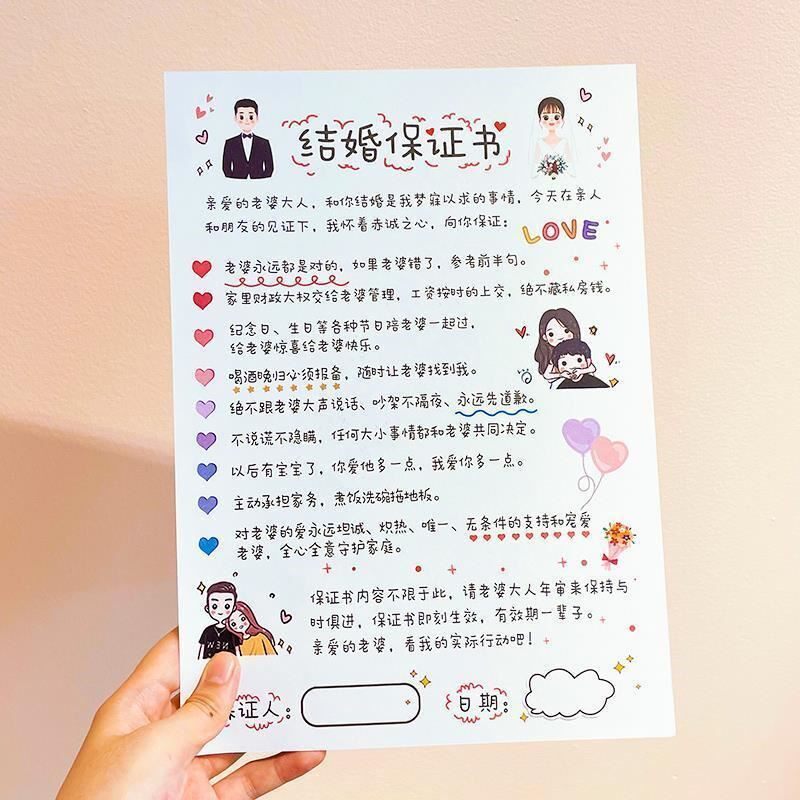 结婚保证书
亲爱的老婆大人，和你结婚是我梦寐以求的事情，今天在亲人
和朋友的见证下，我怀着赤诚之心，向你保证：
LOVE
老婆永远都是对的，如果老婆错了，参考前半句。
家里财政大权交给老婆管理，工资按时的上交，绝不藏私房钱。
纪念日、生日等各种节日陪老婆一起过，
给老婆惊喜给老婆快乐。
喝酒晚归必须报备，随时让老婆找到我。
绝不跟老婆大声说话、吵架不隔夜、永远先道歉。
不说谎不隐瞒，任何大小事情都和老婆共同决定。
以后有宝宝了，你爱他多一点，我爱你多一点。
主动承担家务，煮饭洗碗拖地板。
对老婆的爱永远坦诚、炽热、唯一、无条件的支持和宠爱
老婆，全心全意守护家庭。
保证书内容不限于此，请老婆大人年审来保持与
时俱进，保证书即刻生效，有效期一辈子。
亲爱的老婆，看我的实际行动吧！
NEW
保证人：
日期：